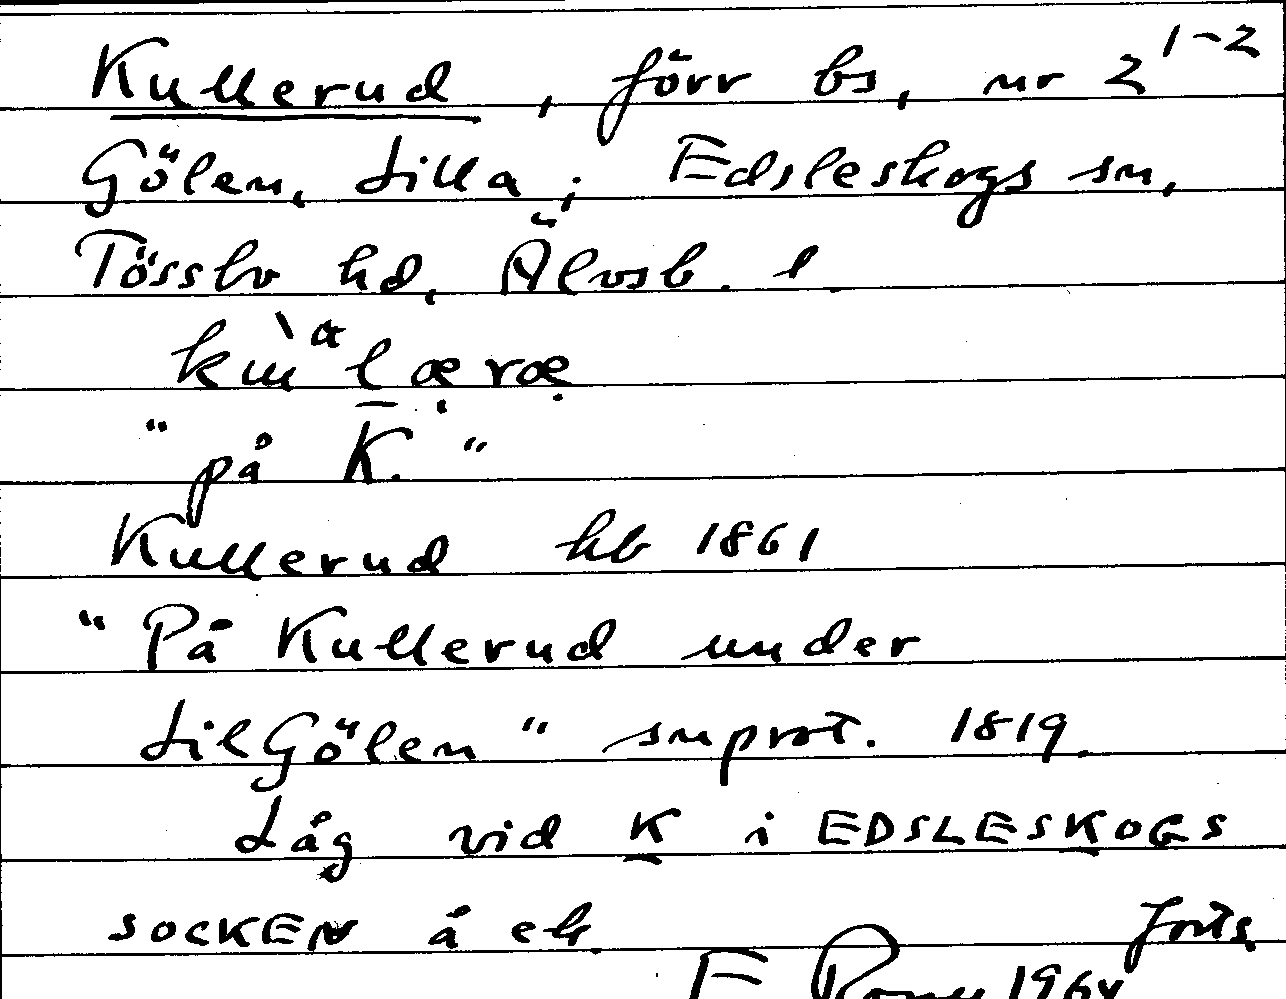 Kullerud, förr bs, nr 2 1-2
Gölen, Lilla; Edsleskogs sn,
Tössbo hd, Älvsb. l.
"på K."
Kullerud hb 1861
"På Kullerud under
LilGölen" snprot. 1819.
Låg vid K i EDSLESKOGS
SOCKEN å ek.
forts.
E 1964